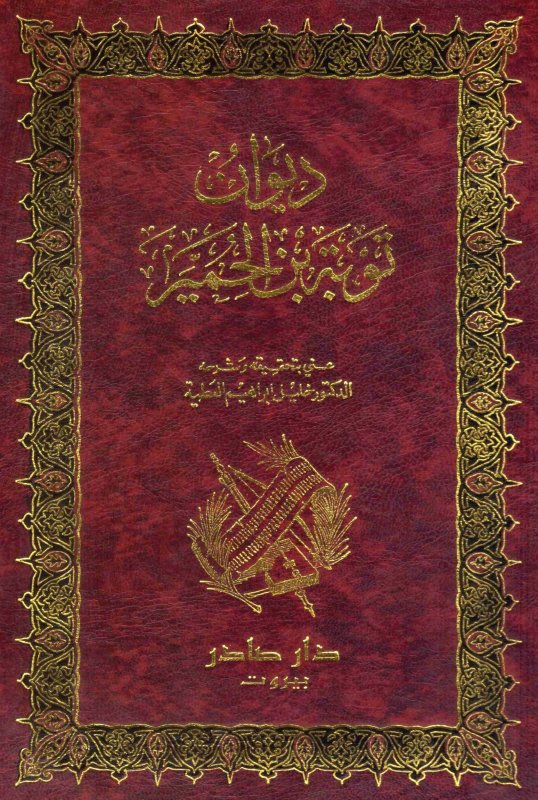 ديوان
توبة بن الحمير
عني بتحقيقه وشرحه
الدكتور خليل إبراهيم العطية
دار صادر
بيروت